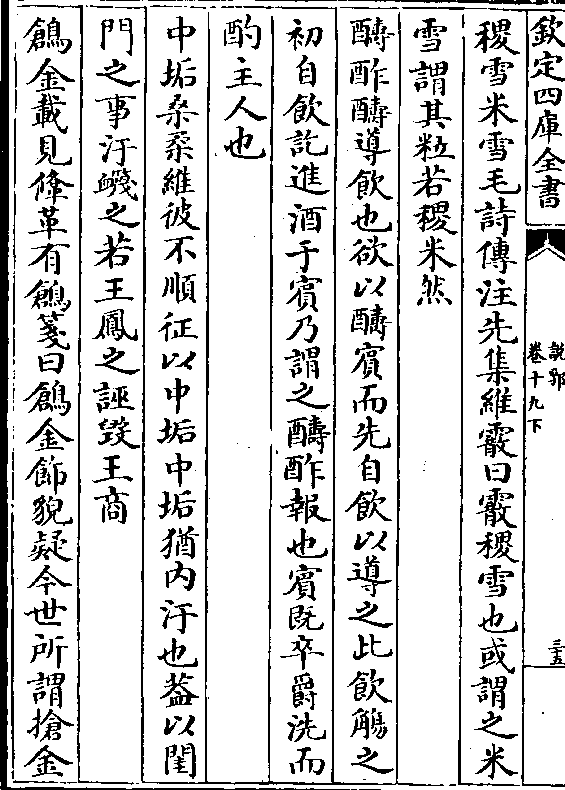 欽定四庫全書
說郛
卷十九下
三五
稷雪米雪毛詩傳注先集維霰曰霰稷雪也或謂之米
雪謂其粒若稷米然
醻酢醻導飲也欲以醻賓而先自飲以導之此飲觴之
初自飲訖進酒于賓乃謂之醻酢報也賓既卒爵洗而
酌主人也
中垢桑桑維彼不順征以中垢中垢猶内汙也葢以閨
門之事汙衊之若王鳳之誣毀王商
鶬金載見鞗革有鶬箋曰鶬金飾貌疑今世所謂搶金